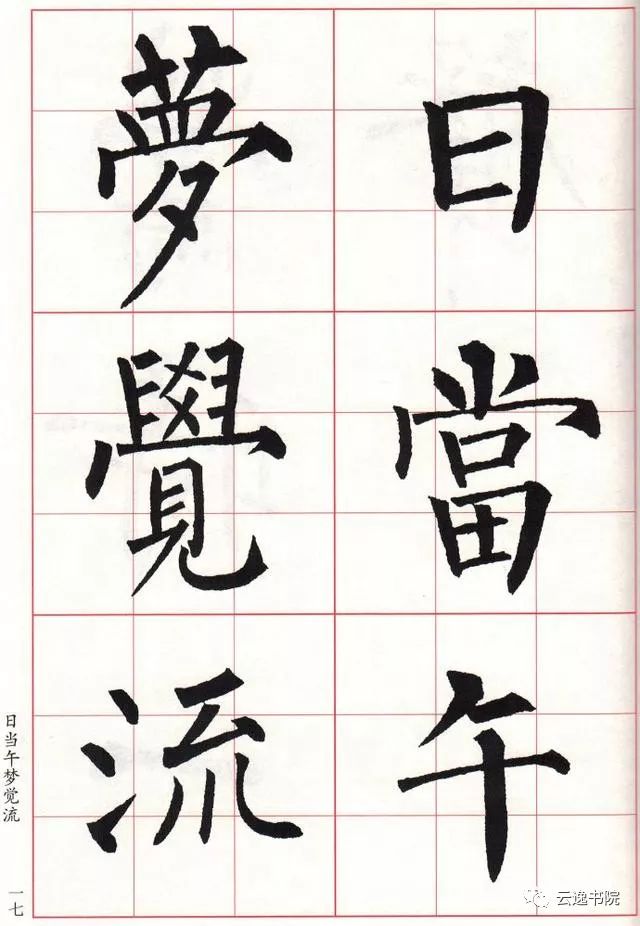 日當午
夢覺流
日当午梦觉流
一七
云逸书院